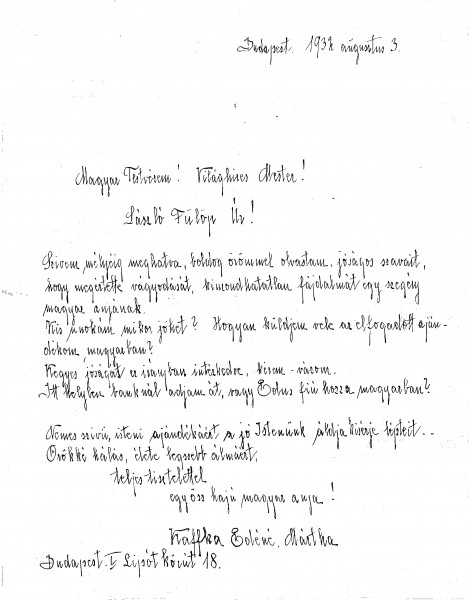 Budapest. 1932 augusztus 3.
Magyar Testvérem! Világhíres Mester!
László Fülöp Úr!
Szívem mélyéig meghatva, boldog örömmel olvastam, jóságos szavait,
hogy megértette vágyódását, kimondhatatlan fájdalmát egy szegény
magyar anyának.
Kis unokám mikor jöhet? Hogyan küldjem vele az elfogadott aján-
dékom, magyarban?
Kegyes jóságát ez irányban intézkedve, kérem - várom.
Itt helyben banknál adjam át, vagy Ödus fiú hozza magyarban?
Nemes szívű, isteni ajándékáért a jó Istenünk áldja kisérje lépteit..
Örökké hálás, élete legszebb álmáért,
teljes tisztelettel
egy ősz hajú magyar anya!
Kaffka Ödéné, Mártha
Budapest. V Lipót körút 18.